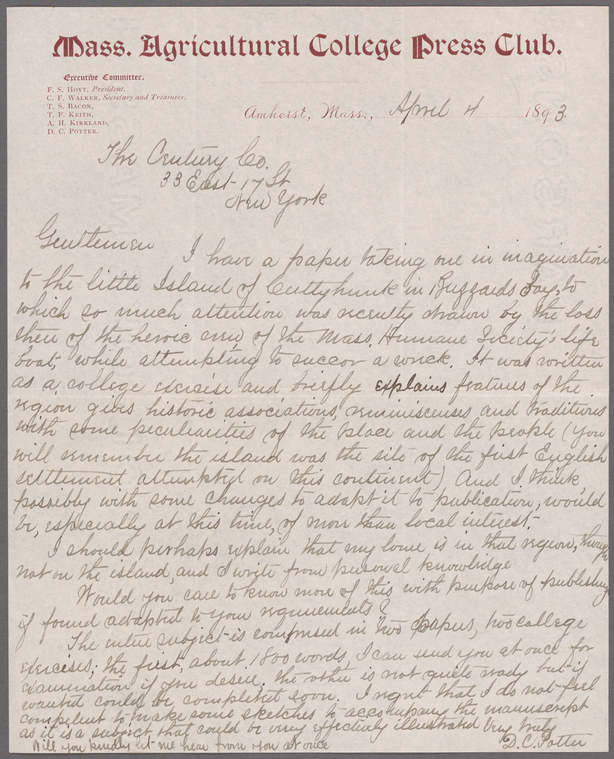 Mass. Agricultural College Press Club.
Executive Committee.
F. S. HOYT, President,
C. F. WALKER, Secretary and Treasurer.
T. S. BACON,
T. F. KEITH,
A. H. KIRKLAND,
D. C. POTTER.
Amherst, Mass., April 4 1893
The Century Co.
33 East 17 St
New York
Gentlemen I have a paper taking one in imagination
to the little Island of Cuttyhunk in Buzzards Bay, to
which so much attention was recently drawn by the loss
there of the heroic crew of the Mass. Humane Society's life
boat, while attempting to succor a wreck. It was written
as a college exercise and briefly explains features of the
region gives historic associations, reminiscenses and traditions
with some peculiarities of the place and the people (You
will remember the island was the site of the first English
settlement attempted on this continent) And I think
possibly with some changes to adapt it to publication, would
be, especially at this time, of more than local interest.
I should perhaps explain that my home is in that region, though
not on the island, and I write from personal knowledge
Would you care to know more of this with purpose of publishing
if found adapted to your requirements?
The entire subject is comprised in two papers, two college
exercises; the first, about 1800 words, I can send you at once for
examination if you desire. the other is not quite ready but if
wanted could be completed soon. I regret that I do not feel
competent to make some sketches to accompany the manuscript
as it is a subject that could be very effectively illustrated Very truly
Will you kindly let me hear from you at once D. C. Potter